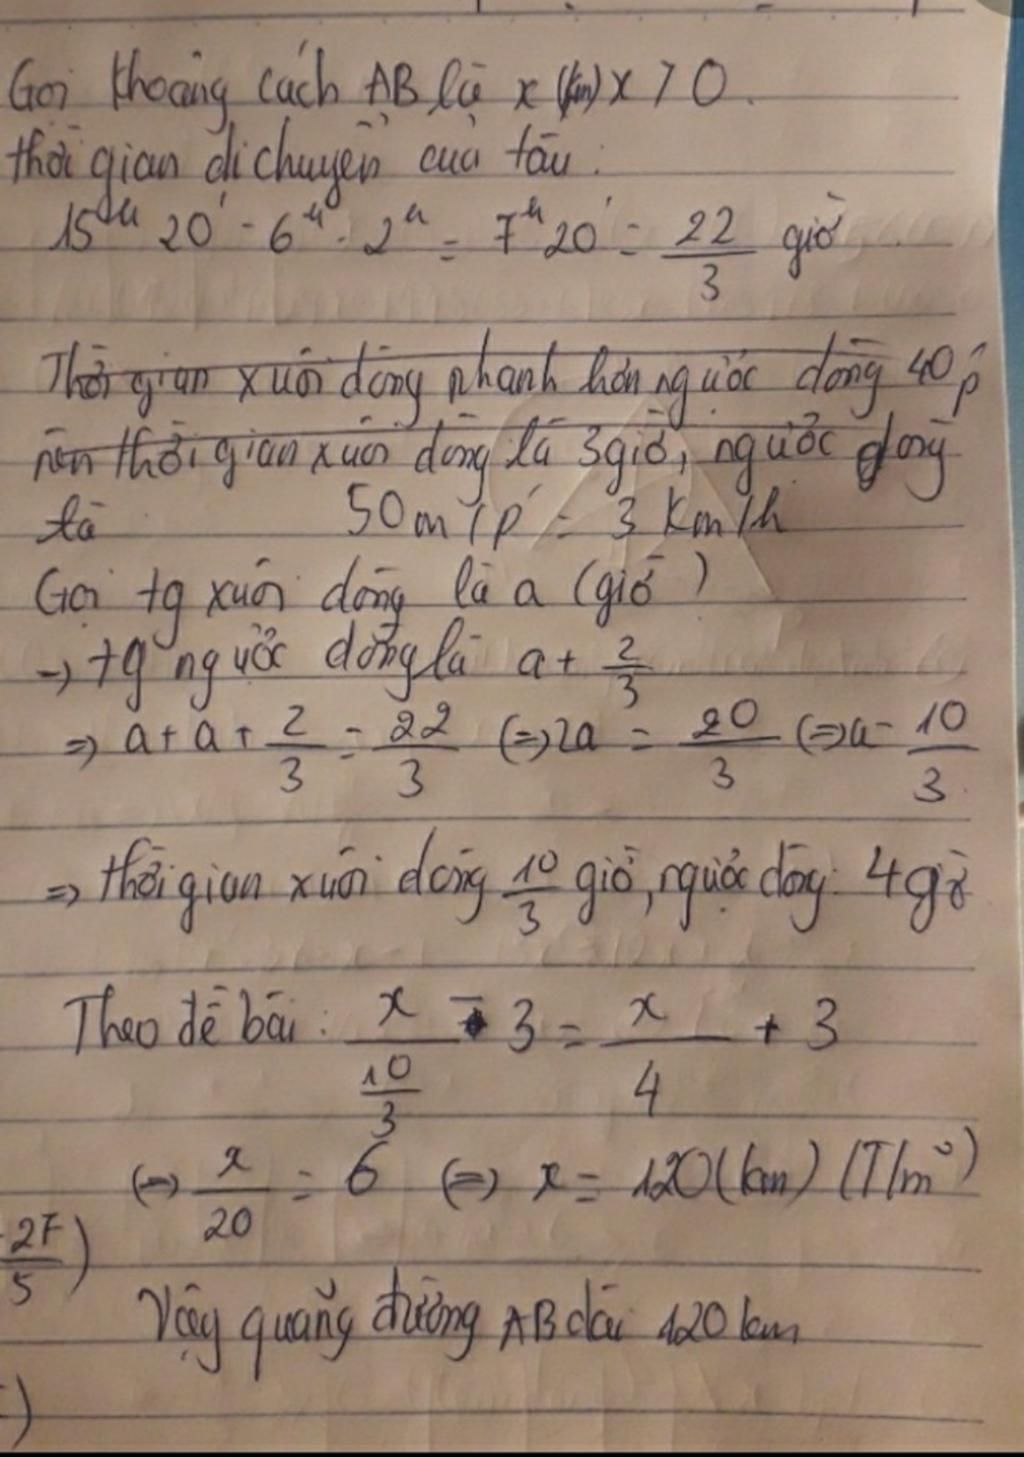 Gọi khoảng cách AB là x (km) x > 0.
thời gian di chuyển của tàu:
15h 20' - 6h - 2h = 7h 20' = 22/3 giờ
Thời gian xuôi dòng nhanh hơn ngược dòng 40p
nên thời gian xuôi dòng là 3 giờ, ngược dòng
là 50m/p' = 3 km/h
Gọi tg xuôi dòng là a (giờ)
→ tg ngược dòng là a + 2/3
⇒ a + a + 2/3 = 22/3 (⇒) 2a = 20/3 (⇒) a = 10/3
⇒ thời gian xuôi dòng 10/3 giờ, ngược dòng: 4 giờ
Theo đề bài: x/(10/3) - 3 = x/4 + 3
(⇒) x/20 = 6 (⇒) x = 120 (km) (T/m²)
2F/5 )
Vậy quãng đường AB dài 120 km
)